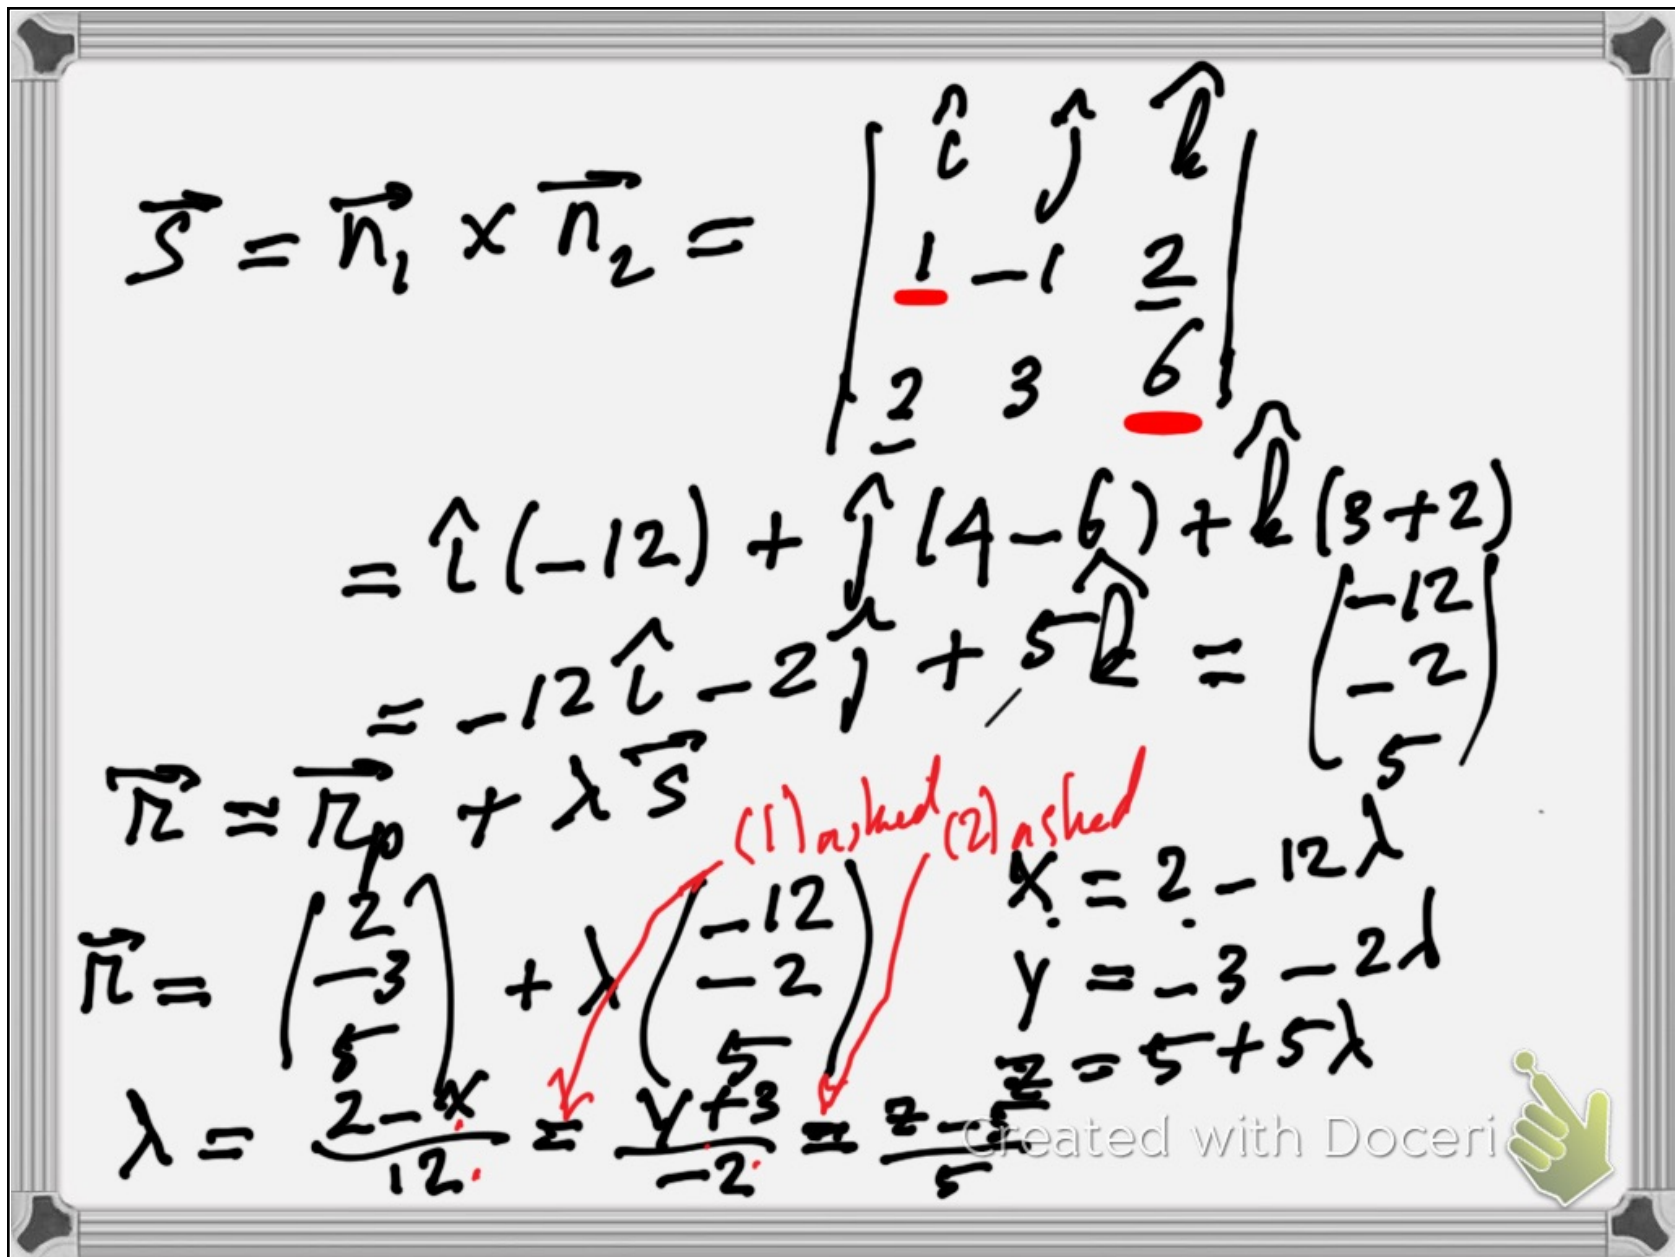 î ĵ k̂
s⃗ = n⃗₁ × n⃗₂ = | 1 −1 2 |
2 3 6
= î(−12) + ĵ(4−6) + k̂(3+2)
= −12î − 2ĵ + 5k̂ = (−12 −2 5)
r⃗ = r⃗p + λs⃗
(1) asked (2) asked
r⃗ = (2 −3 5) + λ(−12 −2 5)
x = 2 − 12λ
y = −3 − 2λ
z = 5 + 5λ
λ = (2−x)/12 = (y+3)/−2 = (z−5)/5
Created with Doceri